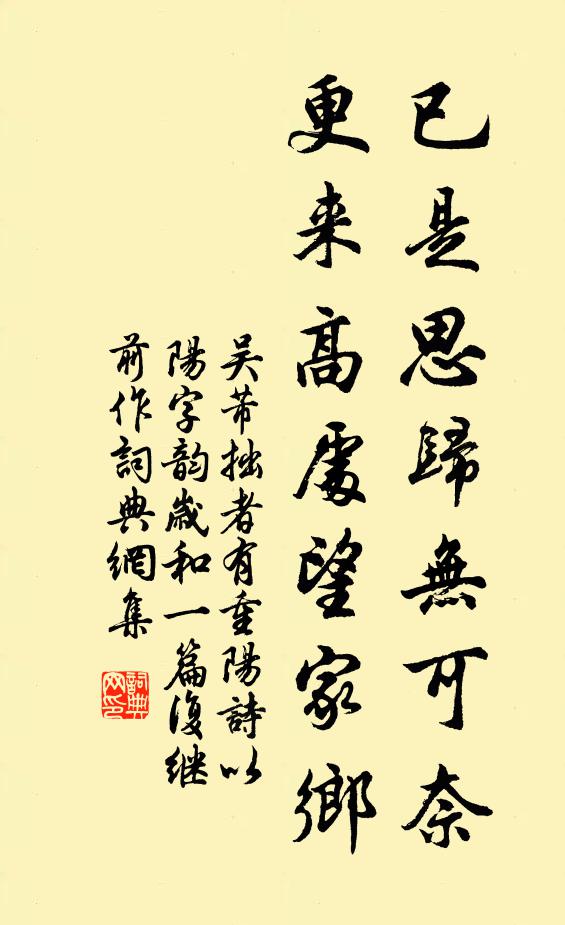 已是思歸無可奈
更来高處望家鄉
吴芾拙者有重陽詩以
陽字韵歲和一篇復继
前作詞典網集
詞典網印